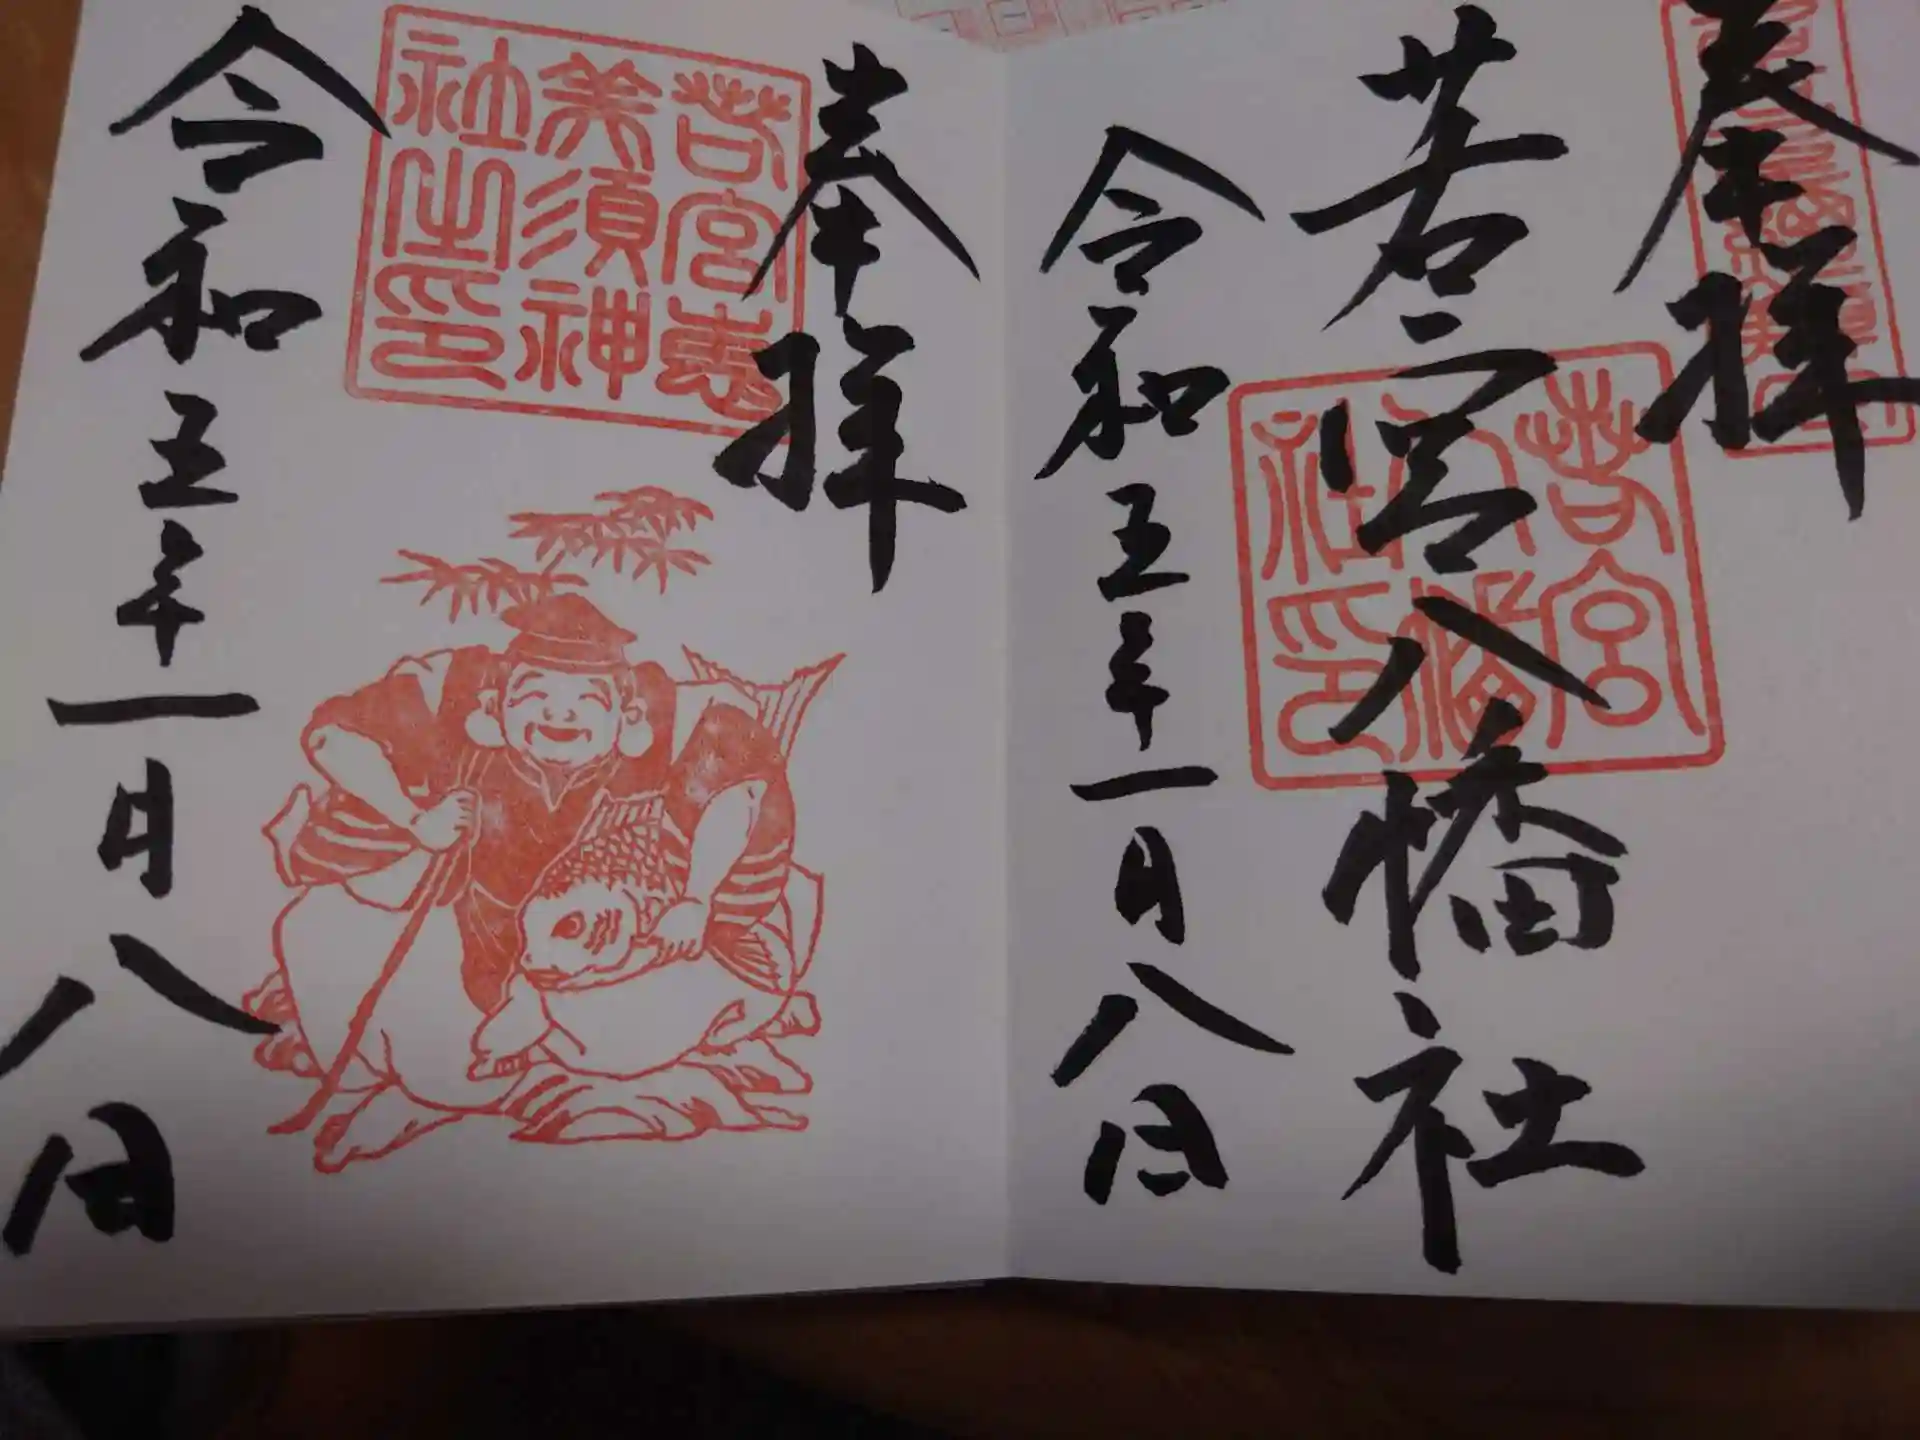 奉拝
若宮八幡社
若宮八幡社印
令和五年一月八日
奉拝
若宮恵美須神社之印
令和五年一月八日